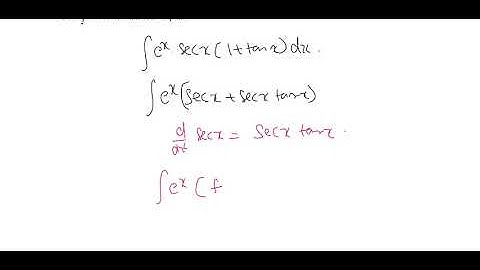 ∫e^x secx(1+tanx)dx.
∫e^x(secx+secx tanx)
d/dx secx = secx tanx.
∫e^x(f